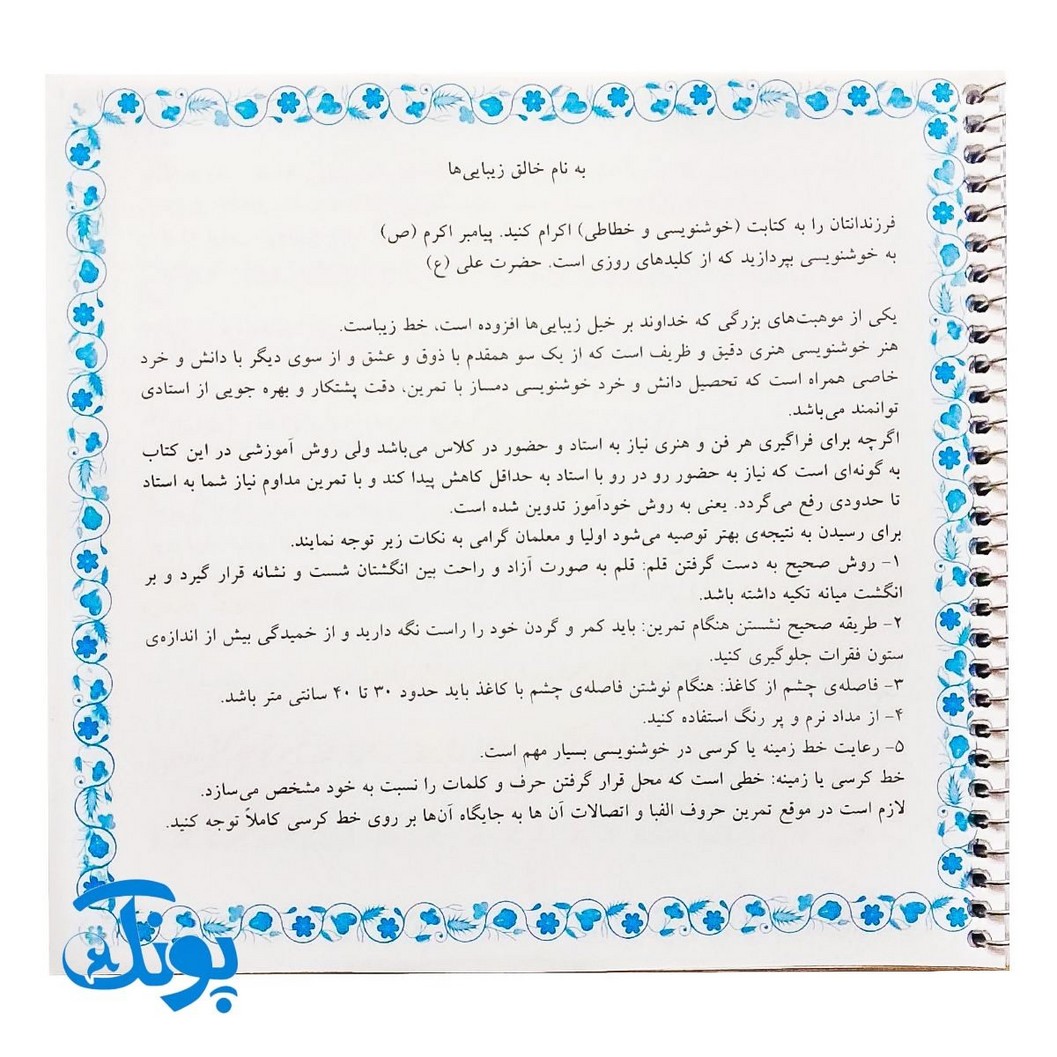 به نام خالق زیبایی‌ها
فرزندانتان را به کتابت (خوشنویسی و خطاطی) اکرام کنید. پیامبر اکرم (ص)
به خوشنویسی بپردازید که از کلیدهای روزی است. حضرت علی (ع)
یکی از موهبت‌های بزرگی که خداوند بر خیل زیبایی‌ها افزوده است، خط زیباست.
هنر خوشنویسی هنری دقیق و ظریف است که از یک سو همقدم با ذوق و عشق و از سوی دیگر با دانش و خرد
خاصی همراه است که تحصیل دانش و خرد خوشنویسی دمساز با تمرین، دقت پشتکار و بهره جویی از استادی
توانمند می‌باشد.
اگرچه برای فراگیری هر فن و هنری نیاز به استاد و حضور در کلاس می‌باشد ولی روش آموزشی در این کتاب
به گونه‌ای است که نیاز به حضور رو در رو با استاد به حداقل کاهش پیدا کند و با تمرین مداوم نیاز شما به استاد
تا حدودی رفع می‌گردد. یعنی به روش خودآموز تدوین شده است.
برای رسیدن به نتیجه‌ی بهتر توصیه می‌شود اولیا و معلمان گرامی به نکات زیر توجه نمایند.
۱- روش صحیح به دست گرفتن قلم: قلم به صورت آزاد و راحت بین انگشتان شست و نشانه قرار گیرد و بر
انگشت میانه تکیه داشته باشد.
۲- طریقه صحیح نشستن هنگام تمرین: باید کمر و گردن خود را راست نگه دارید و از خمیدگی بیش از اندازه‌ی
ستون فقرات جلوگیری کنید.
۳- فاصله‌ی چشم از کاغذ: هنگام نوشتن فاصله‌ی چشم با کاغذ باید حدود ۳۰ تا ۴۰ سانتی متر باشد.
۴- از مداد نرم و پر رنگ استفاده کنید.
۵- رعایت خط زمینه یا کرسی در خوشنویسی بسیار مهم است.
خط کرسی یا زمینه: خطی است که محل قرار گرفتن حرف و کلمات را نسبت به خود مشخص می‌سازد.
لازم است در موقع تمرین حروف الفبا و اتصالات آن ها به جایگاه آن‌ها بر روی خط کرسی کاملاً توجه کنید.
پونک